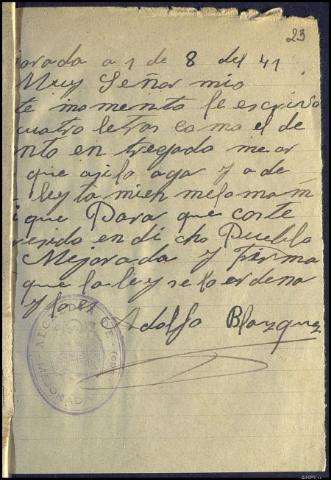 23
jorada a 1 de 8 del 41
Muy Señor mio
te momento le escrivo
cuatro letras como el de
nto en tregado me or
que agilo aga y a de
ley ta mien me lo mam
i que Para que coste
en di cho Pueblo
Mejorada y Firma
que la ley se lo ordena
y lo es Adolfo Blazquez
ALCALDIA DE
MEJORADA